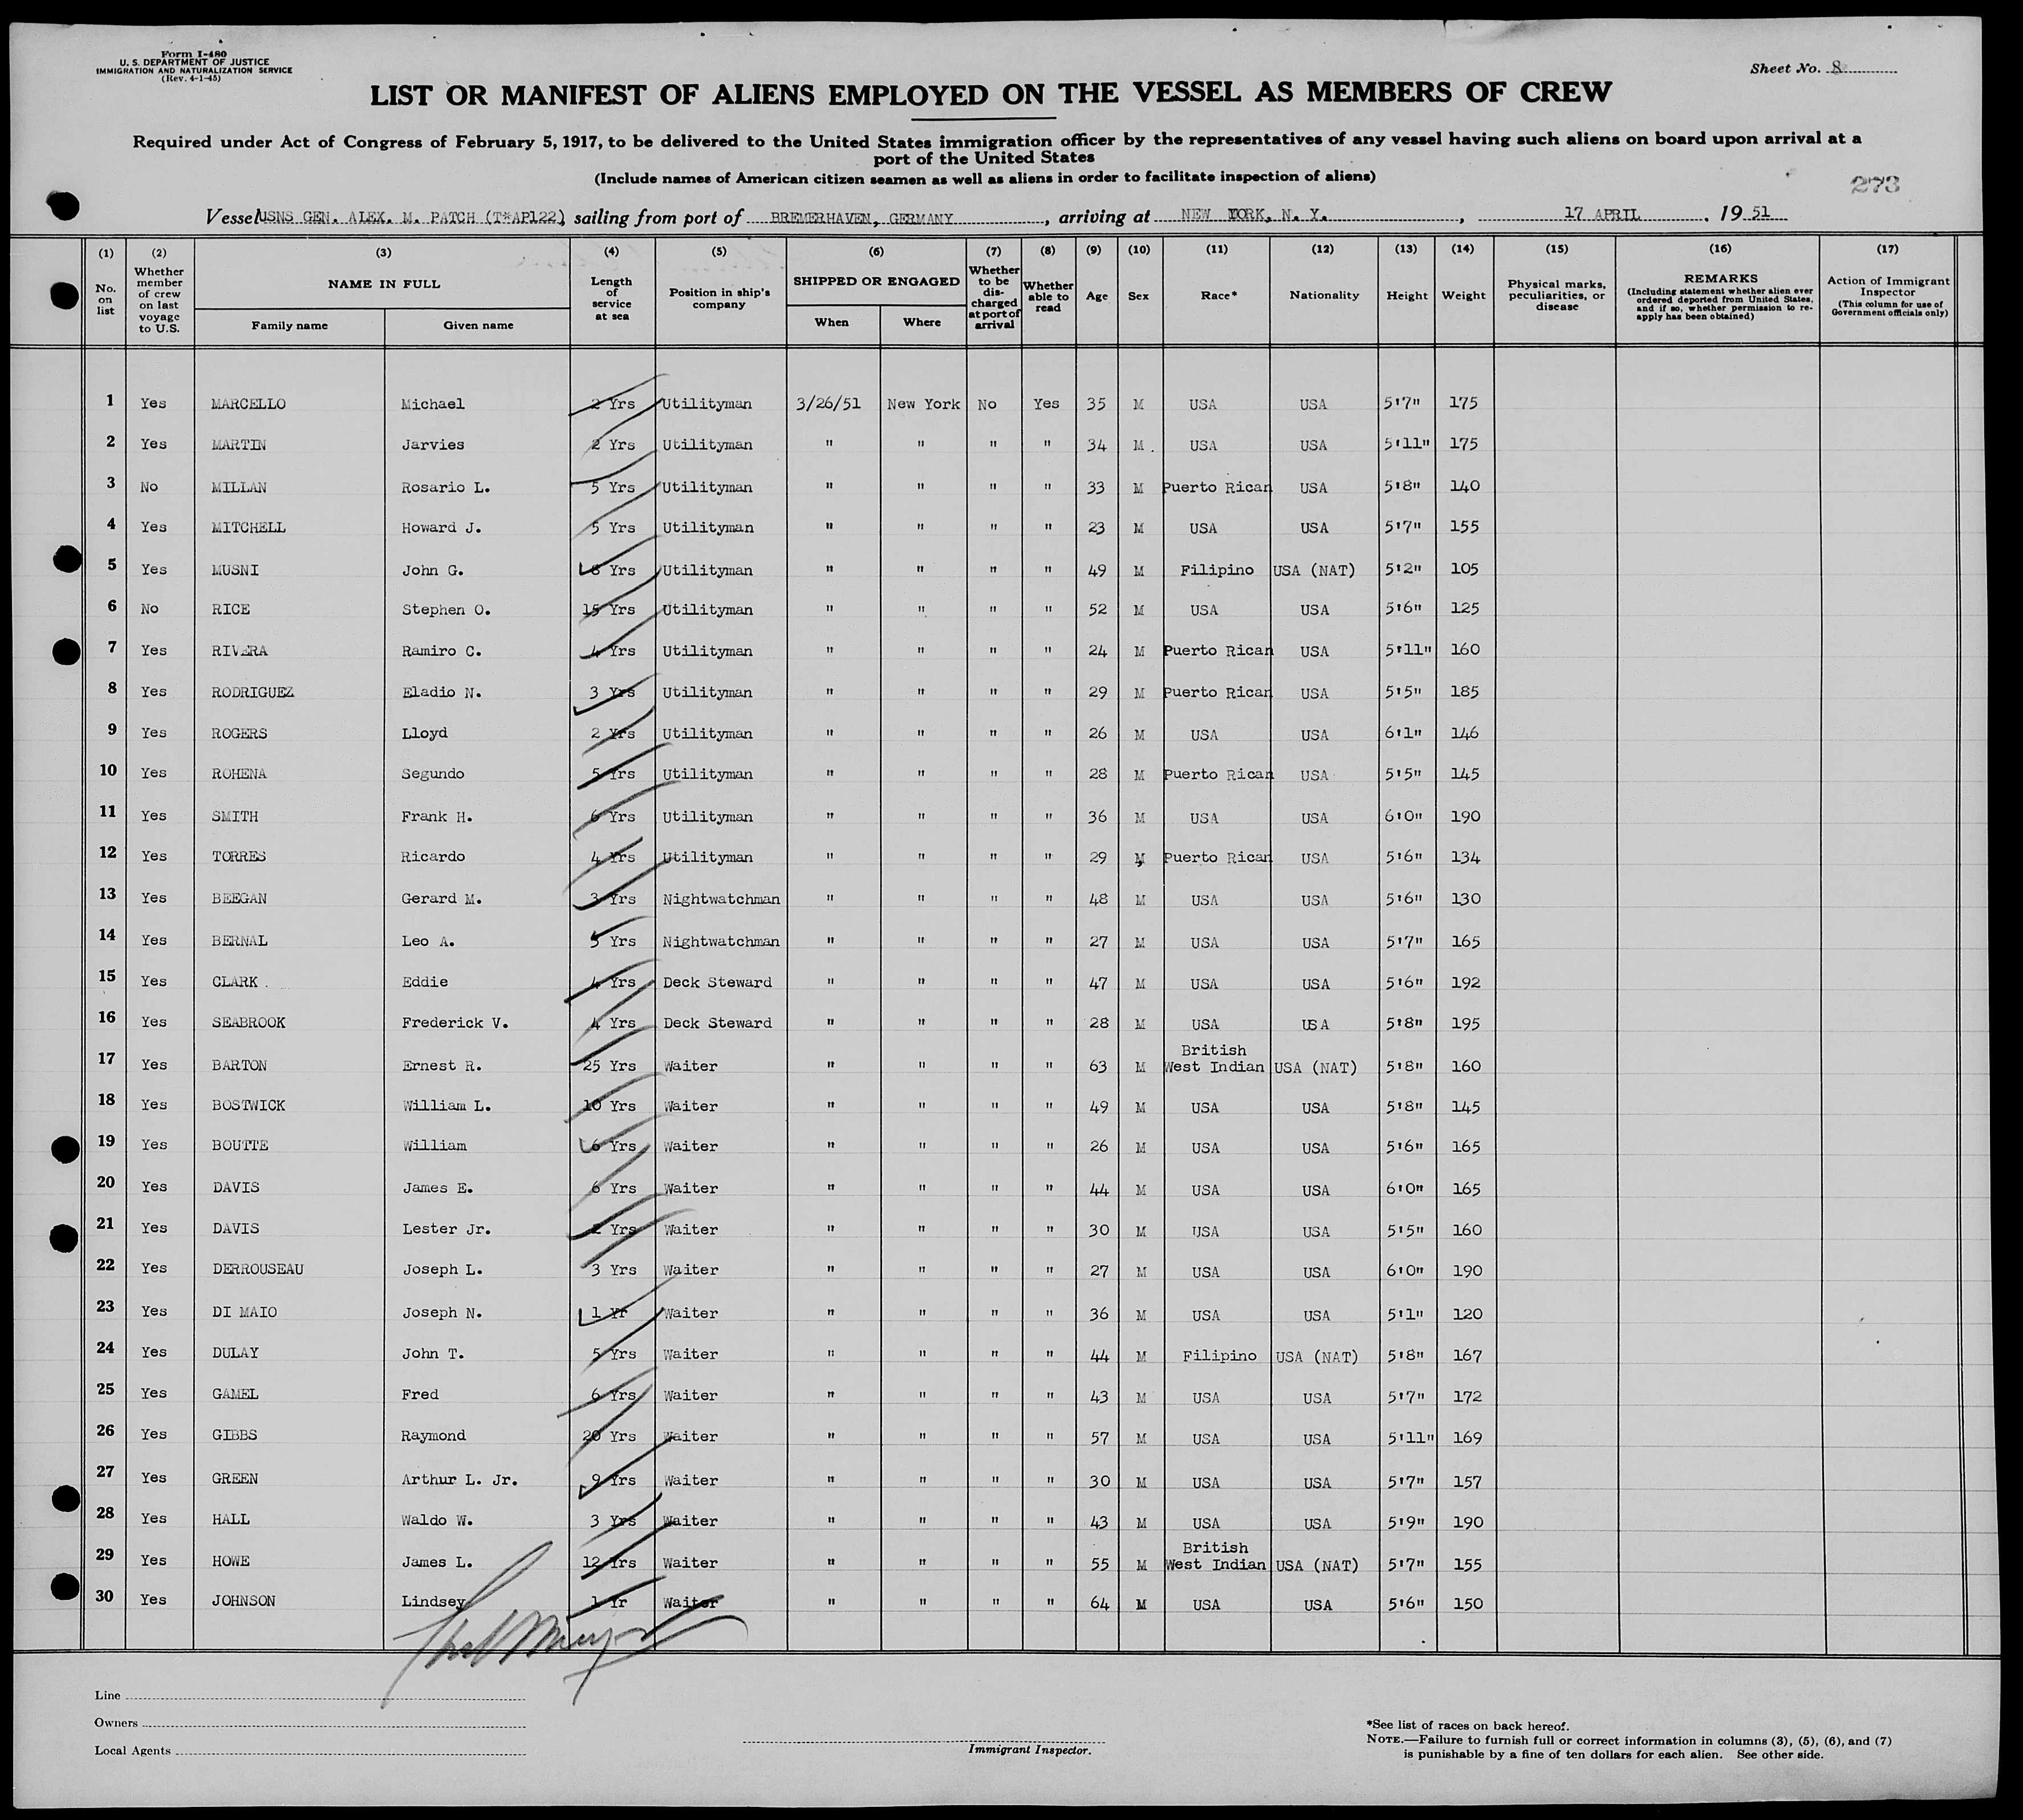 Form I-480
U. S. DEPARTMENT OF JUSTICE
IMMIGRATION AND NATURALIZATION SERVICE
(Rev. 4-1-45)
Sheet No. 8
LIST OR MANIFEST OF ALIENS EMPLOYED ON THE VESSEL AS MEMBERS OF CREW
Required under Act of Congress of February 5, 1917, to be delivered to the United States immigration officer by the representatives of any vessel having such aliens on board upon arrival at a
port of the United States
(Include names of American citizen seamen as well as aliens in order to facilitate inspection of aliens)
273
Vessel USNS GEN. ALEX. M. PATCH (T*AP122) sailing from port of BREMERHAVEN, GERMANY, arriving at NEW YORK, N. Y., 17 APRIL, 19 51
(1) (2) (3) (4) (5) (6) (7) (8) (9) (10) (11) (12) (13) (14) (15) (16) (17)
No. on list
Whether member of crew on last voyage to U.S.
NAME IN FULL
Family name Given name
Length of service at sea
Position in ship's company
SHIPPED OR ENGAGED
When Where
Whether to be discharged at port of arrival
Whether able to read
Age Sex Race* Nationality Height Weight
Physical marks, peculiarities, or disease
REMARKS
(Including statement whether alien ever ordered deported from United States, and if so, whether permission to re-apply has been obtained)
Action of Immigrant Inspector
(This column for use of Government officials only)
1 Yes MARCELLO Michael 2 Yrs Utilityman 3/26/51 New York No Yes 35 M USA USA 5'7" 175
2 Yes MARTIN Jarvies 2 Yrs Utilityman " " " " 34 M . USA USA 5'11" 175
3 No MILLAN Rosario L. 5 Yrs Utilityman " " " " 33 M Puerto Rican USA 5'8" 140
4 Yes MITCHELL Howard J. 5 Yrs Utilityman " " " " 23 M USA USA 5'7" 155
5 Yes MUSNI John G. 8 Yrs Utilityman " " " " 49 M Filipino USA (NAT) 5'2" 105
6 No RICE Stephen O. 15 Yrs Utilityman " " " " 52 M USA USA 5'6" 125
7 Yes RIVERA Ramiro C. 4 Yrs Utilityman " " " " 24 M Puerto Rican USA 5'11" 160
8 Yes RODRIGUEZ Eladio N. 3 Yrs Utilityman " " " " 29 M Puerto Rican USA 5'5" 185
9 Yes ROGERS Lloyd 2 Yrs Utilityman " " " " 26 M USA USA 6'1" 146
10 Yes ROHENA Segundo 5 Yrs Utilityman " " " " 28 M Puerto Rican USA 5'5" 145
11 Yes SMITH Frank H. 6 Yrs Utilityman " " " " 36 M USA USA 6'0" 190
12 Yes TORRES Ricardo 4 Yrs Utilityman " " " " 29 M Puerto Rican USA 5'6" 134
13 Yes BEEGAN Gerard M. 3 Yrs Nightwatchman " " " " 48 M USA USA 5'6" 130
14 Yes BERNAL Leo A. 5 Yrs Nightwatchman " " " " 27 M USA USA 5'7" 165
15 Yes CLARK . Eddie 4 Yrs Deck Steward " " " " 47 M USA USA 5'6" 192
16 Yes SEABROOK Frederick V. 4 Yrs Deck Steward " " " " 28 M USA USA 5'8" 195
17 Yes BARTON Ernest R. 25 Yrs Waiter " " " " 63 M British West Indian USA (NAT) 5'8" 160
18 Yes BOSTWICK William L. 10 Yrs Waiter " " " " 49 M USA USA 5'8" 145
19 Yes BOUTTE William 6 Yrs Waiter " " " " 26 M USA USA 5'6" 165
20 Yes DAVIS James E. 6 Yrs Waiter " " " " 44 M USA USA 6'0" 165
21 Yes DAVIS Lester Jr. 2 Yrs Waiter " " " " 30 M USA USA 5'5" 160
22 Yes DERROUSEAU Joseph L. 3 Yrs Waiter " " " " 27 M USA USA 6'0" 190
23 Yes DI MAIO Joseph N. 1 Yr Waiter " " " " 36 M USA USA 5'1" 120
24 Yes DULAY John T. 5 Yrs Waiter " " " " 44 M Filipino USA (NAT) 5'8" 167
25 Yes GAMEL Fred 6 Yrs Waiter " " " " 43 M USA USA 5'7" 172
26 Yes GIBBS Raymond 20 Yrs Waiter " " " " 57 M USA USA 5'11" 169
27 Yes GREEN Arthur L. Jr. 9 Yrs Waiter " " " " 30 M USA USA 5'7" 157
28 Yes HALL Waldo W. 3 Yrs Waiter " " " " 43 M USA USA 5'9" 190
29 Yes HOWE James L. 12 Yrs Waiter " " " " 55 M British West Indian USA (NAT) 5'7" 155
30 Yes JOHNSON Lindsey 1 Yr Waiter " " " " 64 M USA USA 5'6" 150
Line
Owners
Local Agents
Immigrant Inspector.
*See list of races on back hereof.
NOTE.—Failure to furnish full or correct information in columns (3), (5), (6), and (7)
is punishable by a fine of ten dollars for each alien. See other side.